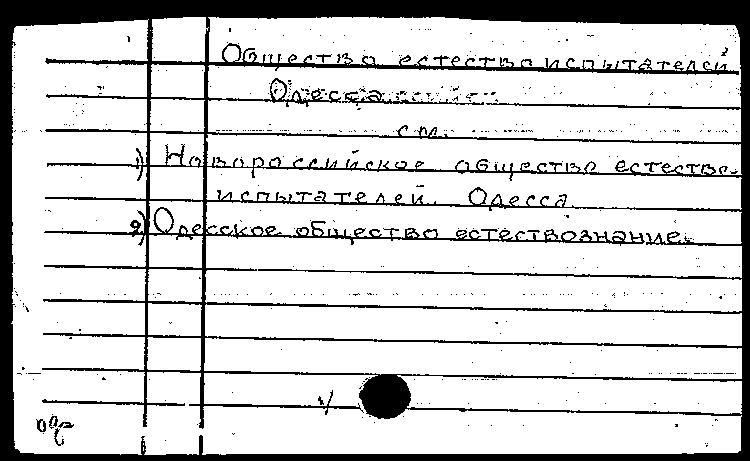 Общество естествоиспытателей
Одесса
см.
1) Новороссийское общество естество-
испытателей. Одесса
2) Одесское общество естествознание.